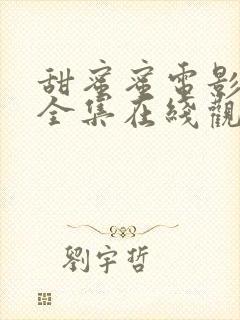 甜蜜蜜電影
全集在綫觀
劉宇哲